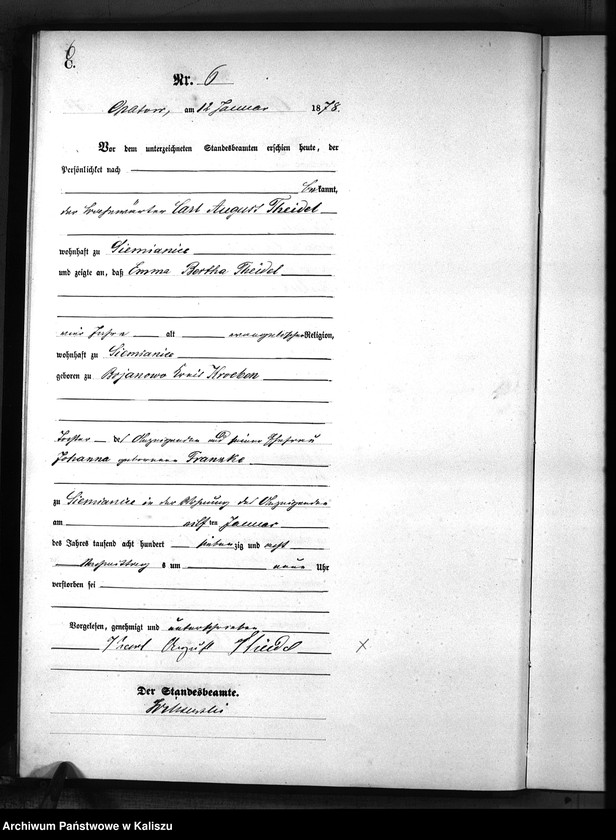 C.
Nr. 6
Opatow, am 12 Januar 1878.
Vor dem unterzeichneten Standesbeamten erschien heute, der
Persönlichkeit nach
bekannt,
der Carl August Theidel
wohnhaft zu Siemianice
und zeigte an, daß Emma Bertha Theidel
alt evangelischer Religion,
wohnhaft zu Siemianice
geboren zu Bojanowo Kreis Kroeben
Tochter des Anzeigenden und seiner Ehefrau
Johanna geborenen Franzke
zu Siemianice in der Wohnung des Anzeigenden
am eilften Januar
des Jahres tausend acht hundert siebenzig und acht
Nachmittags um neun Uhr
verstorben sei
Vorgelesen, genehmigt und unterschrieben
August Theidel
Der Standesbeamte.
Archiwum Państwowe w Kaliszu